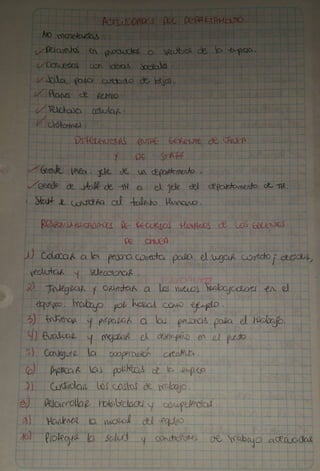 ACTIVIDADES DEL DEPARTAMENTO
No monetarias:
✓ Descuentos en productos o servicios de la empresa.
✓ Convenios con ideas sociales
✓ Sala para cuidado de hijos.
✓ Planes de retiro
✓ Telefonía celular
✓ Uniformes
DIFERENCIAS ENTRE GERENTE DE LINEA
Y DE STAFF
✓ Gerente linea: jefe de un departamento.
✓ Gerente de staff de TH o el jefe del departamento de TH.
Staff = consultoria al talento Humano.
RESPONSABILIDADES DE RECURSOS HUMANOS DE LOS GERENTES
DE LINEA
1) Colocar a la persona correcta para el lugar correcto; es decir,
reclutar y seleccionar.
2) Integrar y orientar a los nuevos trabajadores en el
equipo. trabajo por horas como ejemplo.
3) Entrenar y preparar a las personas para el trabajo.
4) Evaluar y mejorar el desempeño en el puesto
5) Conseguir la cooperación creativa.
6) Aplicar las políticas de la empresa
7) Controlar los costos de trabajo.
8) Desarrollar habilidades y competencias
9) Mantener la moral del equipo
10) Proteger la salud y condiciones de trabajo adecuadas